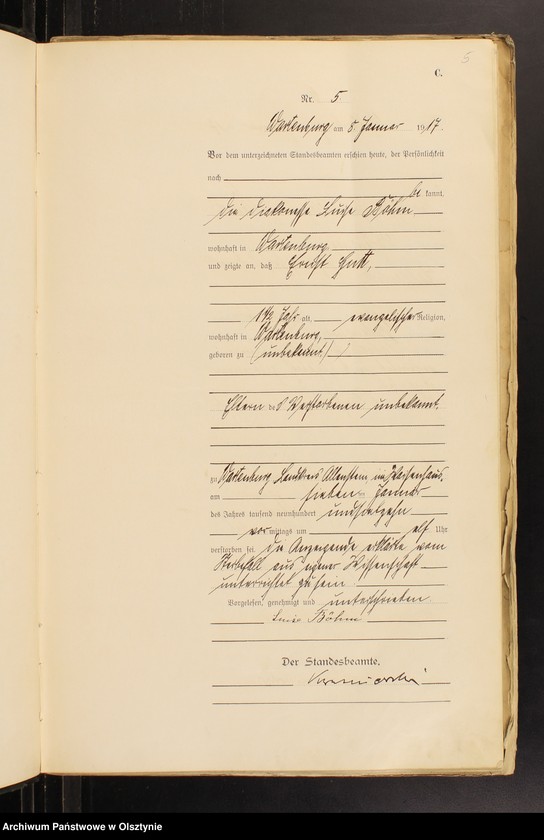 5
C.
Nr. 5
Wartenburg am 5. Januar 1917.
Vor dem unterzeichneten Standesbeamten erschien heute, der Persönlichkeit
nach
be kannt,
die Diakonisse Luise Böhm
wohnhaft in Wartenburg
und zeigte an, daß Gutt,
1 1/2 Jahr alt, evangelischer Religion,
wohnhaft in Wartenburg,
geboren zu (unbekannt)
Eltern des Verstorbenen unbekannt.
zu Wartenburg Landkreis Allenstein, im Waisenhaus,
am Januar
des Jahres tausend neunhundert undsiebzehn
vor mittags um elf Uhr
verstorben sei. Die Anzeigende erklärte vom
Sterbefall aus eigener Wissenschaft
unterrichtet zu sein.
Vorgelesen, genehmigt und unterschrieben
Luise Böhm
Der Standesbeamte.
Archiwum Państwowe w Olsztynie